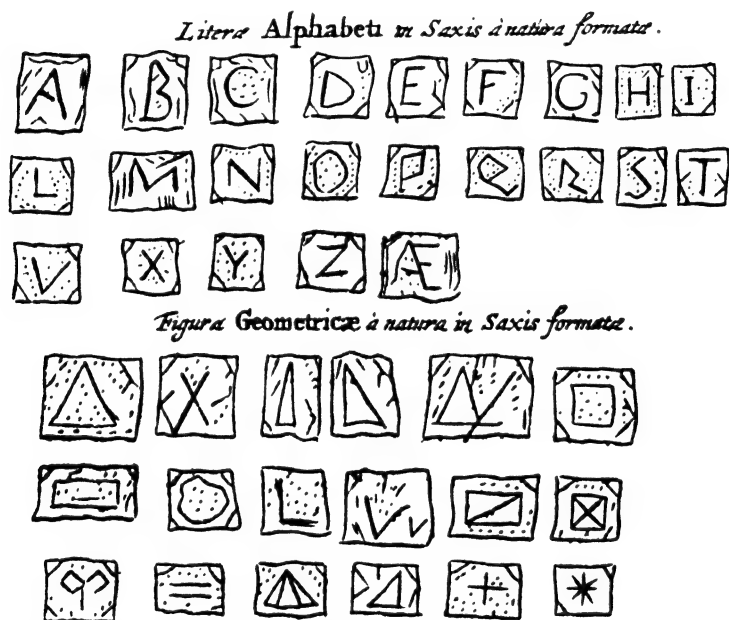 Literæ Alphabeti in Saxis à natura formatæ.
A B C D U E F G H I
L M N O P Q R S T
V X Y Z Æ
Figuræ Geometricæ à natura in Saxis formatæ.
X
L V v
=
+ *